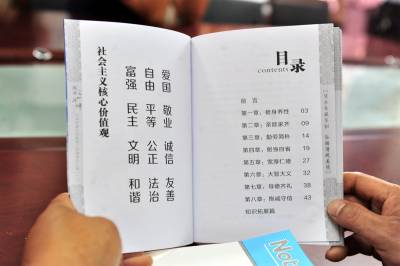 社会主义核心价值观
富强 民主 文明 和谐
自由 平等 公正 法治
爱国 敬业 诚信 友善
目录
contents
前 言
第一章：修身养性 03
第二章： 09
第三章：勤劳简朴 14
第四章： 自省 19
第五章：宽厚仁德 27
第六章：大智大义 32
第七章：导德齐礼 38
第八章： 诚守信 43
知识拓展篇
Not